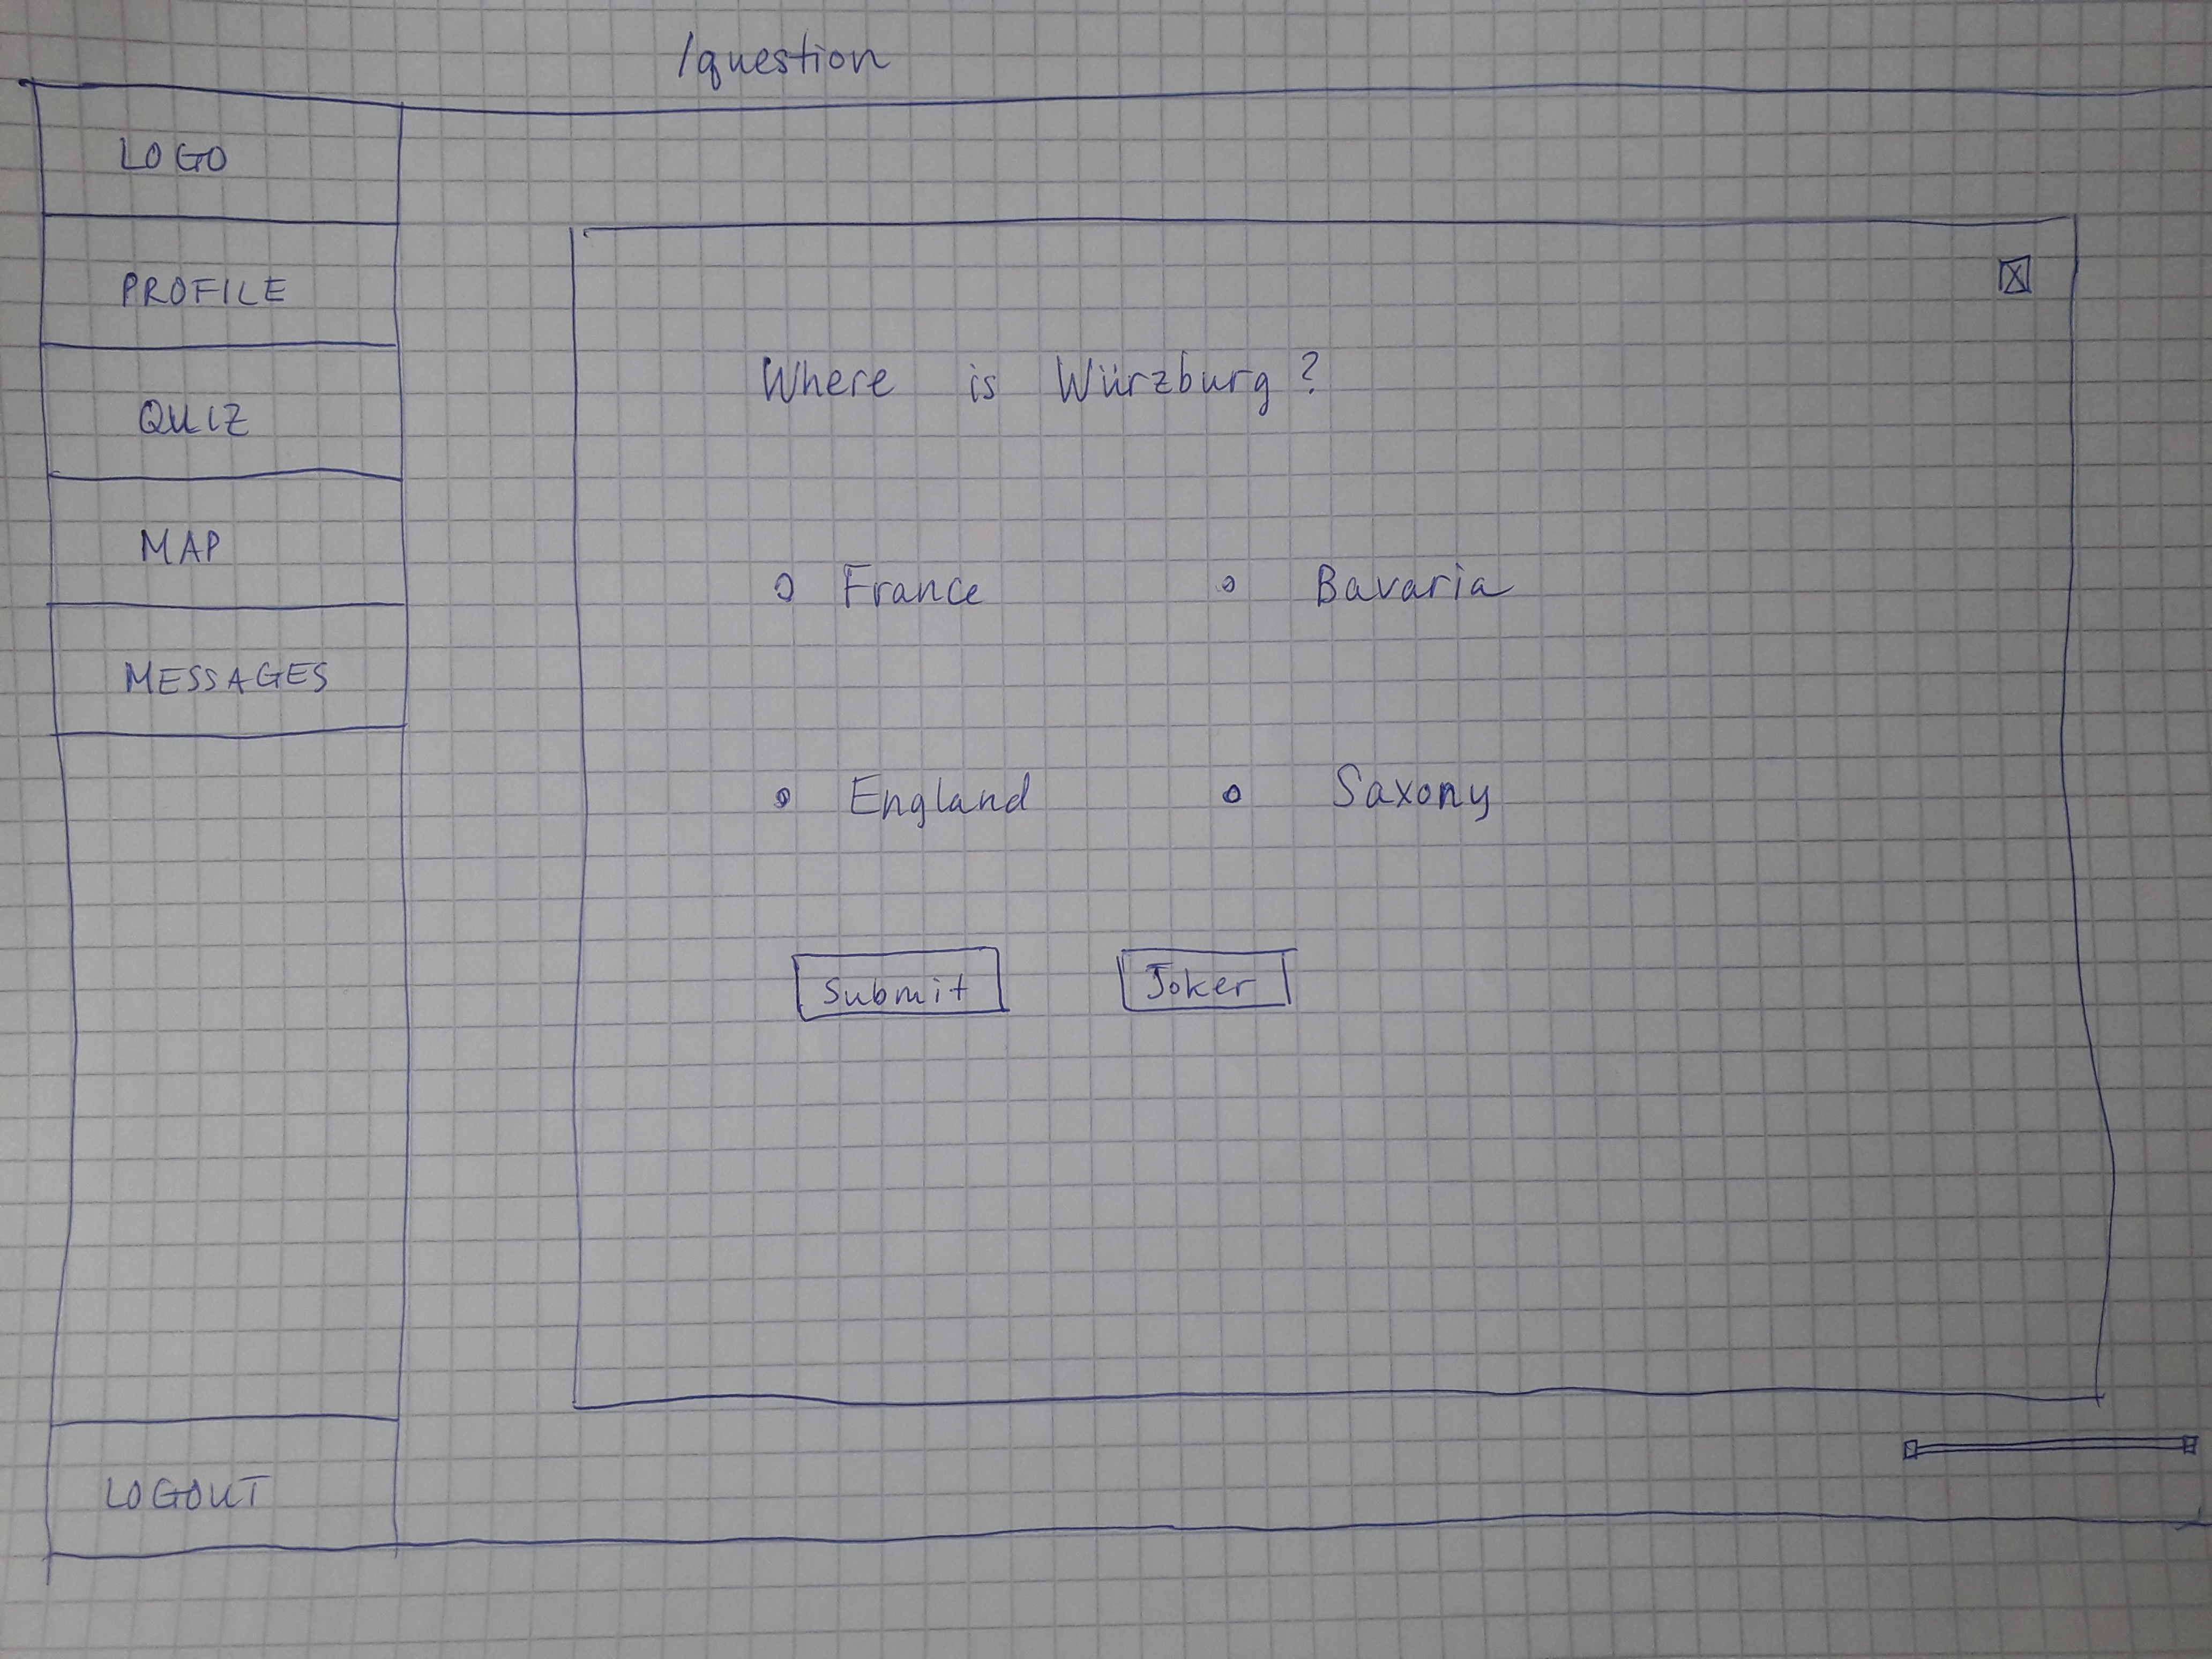 /question
LOGO
PROFILE
QUIZ
MAP
MESSAGES
LOGOUT
Where is Würzburg?
France Bavaria
England Saxony
Submit Joker